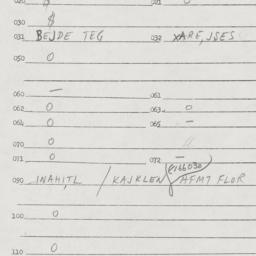 020 $ 021 0
030 $
031 BEJDE TEG 032 XARE, JSES
050 0
060 — 061
062 0 063 0
064 0 065 —
070 0
071 0 072 —
090 INAHI,L / KAJKLEN AFMT FLOR
100 0
110 0